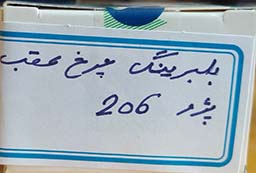 بلبرینگ چرخ عقب
پژو 206